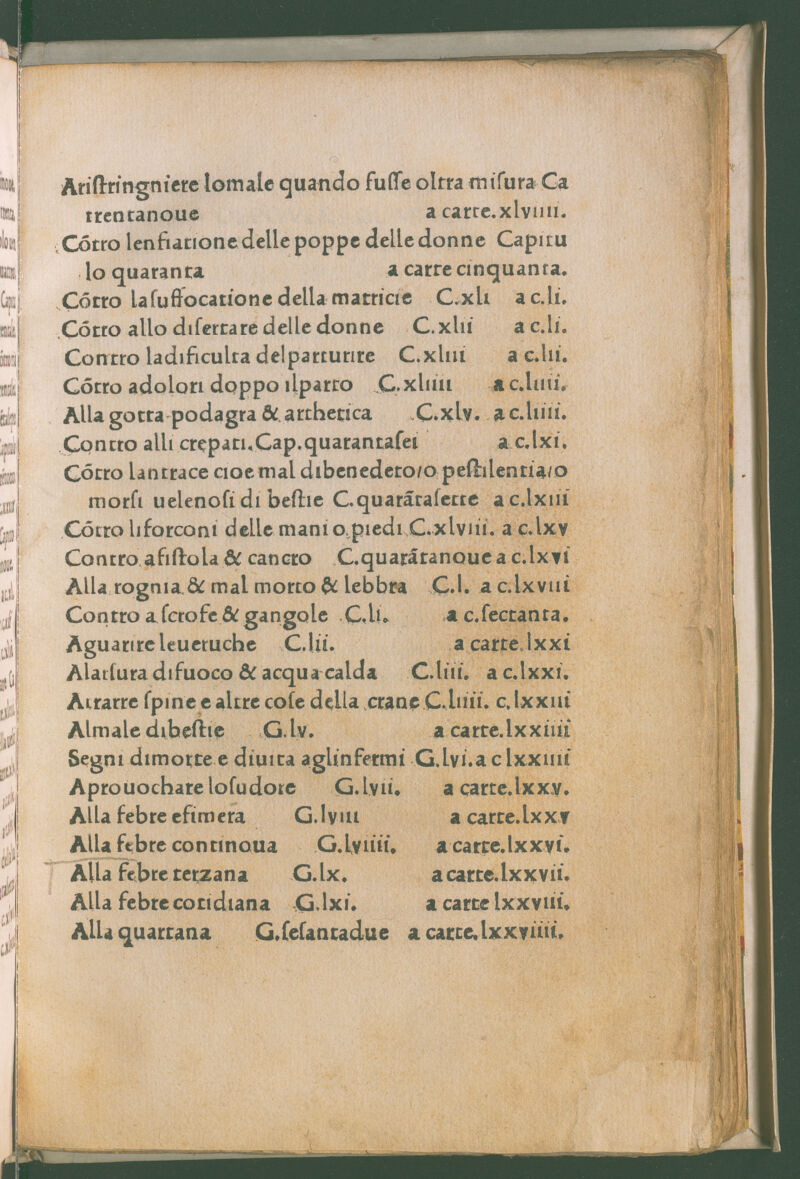 Ariſtringniere lomale quando fuſſe oltra miſura Ca
trentanoue a carte.xlviiii.
Cótro lenfiatione delle poppe delle donne Capitu
lo quaranta a carte cinquanta.
Cótro laſuffocatione della matricie C.xli a c.li.
Cótro allo diſertare delle donne C.xlii a c.li.
Contro ladificulta delparturire C.xliii a c.lii.
Cótro adolori doppo ilparto C.xliiii a c.liiii.
Alla gotta podagra & arthetica C.xlv. a c.liiii.
Contro alli crepati.Cap.quarantaſei a c.lxi.
Cótro lantrace cioe mal dibenedeto/o peſtilentia/o
morſi uelenoſi di beſtie C.quarátaſette a c.lxiii
Cótro liforconi delle mani o piedi C.xlviii. a c.lxv
Contro afiſtola & cancro C.quarátanoue a c.lxvi
Alla rognia & mal morto & lebbra C.l. a c.lxviii
Contro a ſcrofe & gangole C.li. a c.ſectanta.
Aguarire leueruche C.lii. a carte.lxxi
Alarſura difuoco & acqua calda C.liii. a c.lxxi.
Atrarre ſpine e altre coſe della crane C.liiii. c.lxxiii
Almale dibeſtie G.lv. a carte.lxxiiii
Segni dimorte e diuita aglinfermi G.lvi.a c lxxiiii
Aprouochare loſudore G.lvii. a carte.lxxv.
Alla febre efimera G.lviii a carte.lxxv
Alla febre continoua G.lviiii. a carte.lxxvi.
Alla febre terzana G.lx. a carte.lxxvii.
Alla febre cotidiana G.lxi. a carte lxxviii.
Alla quartana G.ſeſantadue a carte.lxxviiii.